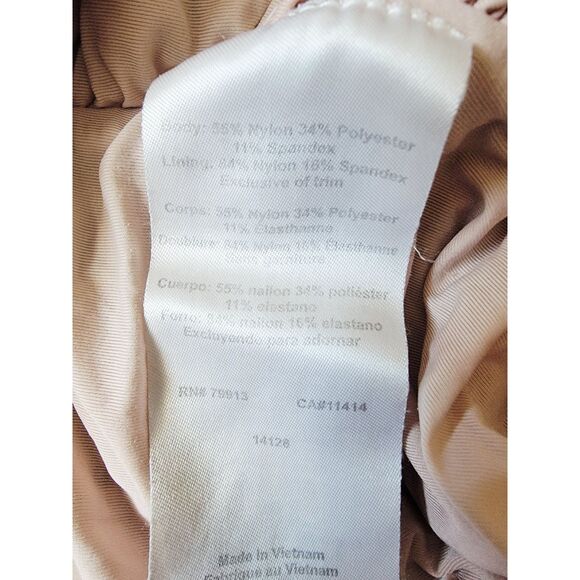 Body: 55% Nylon 34% Polyester
11% Spandex
Lining: 84% Nylon 16% Spandex
Exclusive of trim
Corps: 55% Nylon 34% Polyester
11% Élasthanne
Doublure: 84% Nylon 16% Élasthanne
Sans garniture
Cuerpo: 55% nailon 34% poliéster
11% elastano
Forro: 84% nailon 16% elastano
Excluyendo para adornar
RN# 79913 CA#11414
14126
Made in Vietnam
Fabriqué au Vietnam